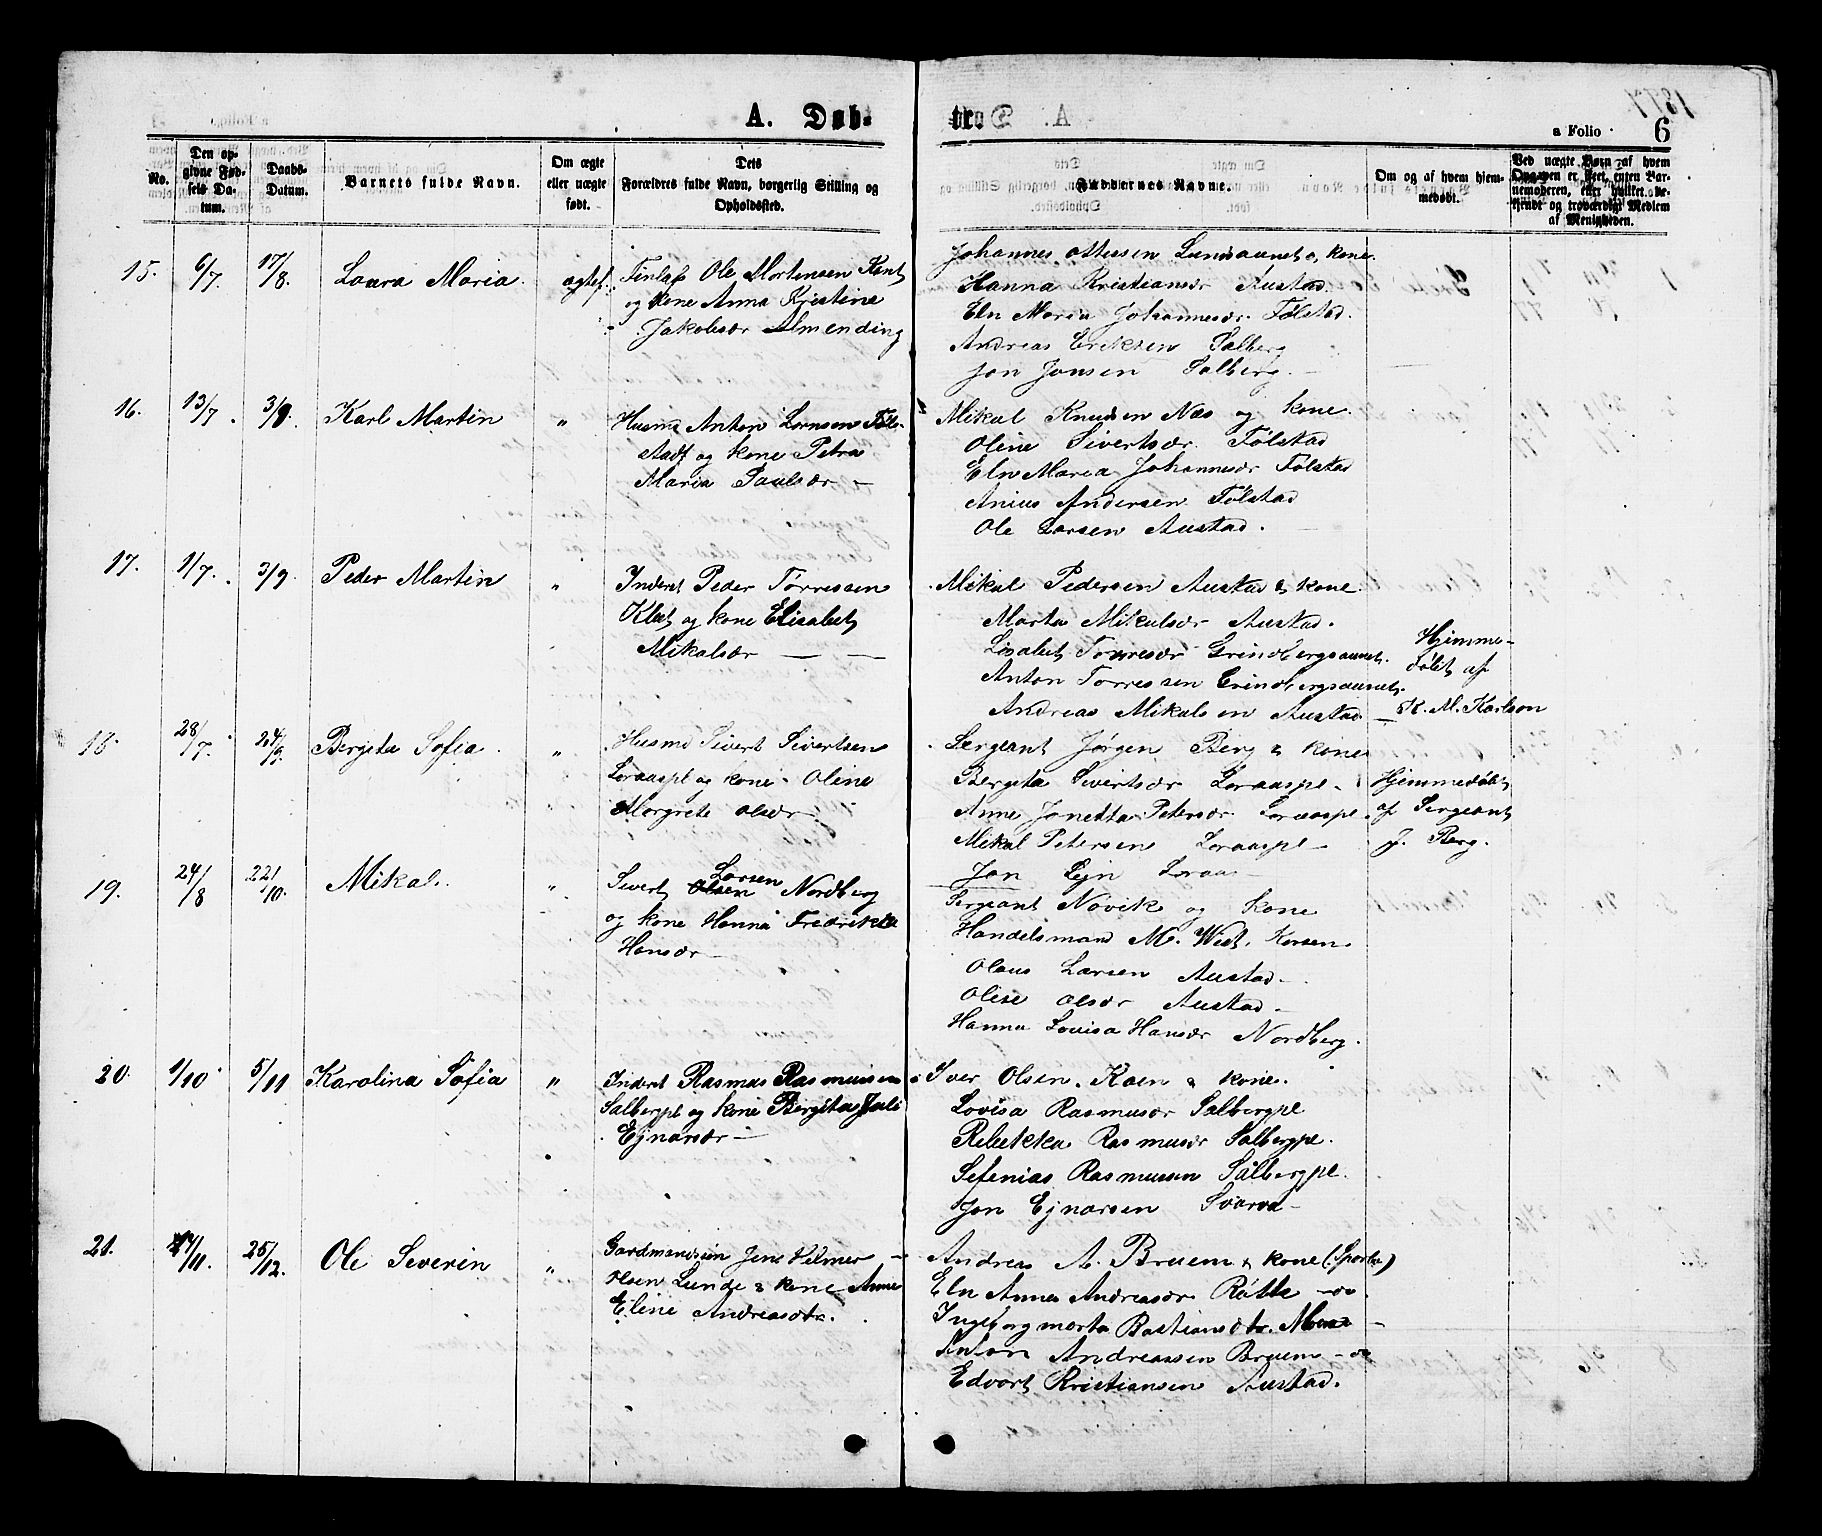 A. Døb-
te.
a Folio
6
No.
Den op-
givne Fød-
sels Da-
tum.
Daabs-
Datum.
Barnets fulde Navn.
Om ægte
eller uægte
født.
Dets
Forældres fulde Navn, borgerlig Stilling og
Opholdssted.
Faddernes Navne.
Om og af hvem hjem-
medøbt.
Ved uægte Børn af hvem
Opgaven er skeet, enten Bar-
nemoderen, eller hvilket be-
kjendt og troværdigt Medlem
af Menigheden.
15. 6/7 17/8 Laura Maria. ægtef.
Ole Mortensen
og kone Anna Kristine
Jakobsdr Almending
Johannes Ottersen Lundsaunet o, kone.
Hanna Kristiansdr Austad.
Eln Maria Johannesdr. Følstad.
Andreas Eriksen Salberg
Jon Jonsen Salberg. -
16. 13/7. 3/9. Karl Martin "
Husmd Anton Lornsen Føl-
stadf og kone Petra
Maria Paulsdr -
Mikal Knudsen Næs og kone.
Oline Sivertsdr. Følstad
Eln Maria Johannesdr Følstad
Anius Andersen. Følstad
Ole Larsen Austad.
17. 1/7. 3/9. Peder Martin "
Inderst Peder Tørressen
Klæt og kone Elisabet
Mikalsdr — —
Mikal Pedersen Austad & kone.
Marta Mikalsdr Austad.
Lisabet Torresdr Grindbergsaunet.
Anton Torressen Grindbergsaunet.
Andreas Mikalsen Austad
Hjemme-
døbt af
K. M. Karlson
18. 28/7. 24/9. Bergita Sofia. "
Husmd Sivert Sivertsen
Loraaspl og kone Oline
Margrete Olsdr.
Sergeant Jørgen Berg & kone
Bergita Sivertsdr Loraaspl.
Anne Jonetta Petersdr Loraaspl.
Mikal Petersen Loraaspl -
Jon Ejn Loraas
Hjemmedøbt
af Sergeant
J. Berg.
19. 24/8 22/10. Mikal. "
Larsen
Sivert Olsen Nordberg
og kone Hanna Fredrikke
Hansdr -
Sergeant Nøvik og kone
Handelsmand M. Wist, Korsen.
Olaus Larsen Austad -
Olise Olsdr Austad -
Hanna Lovisa Hansdr Nordberg.
20. 1/10. 5/11 Karolina Sofia "
Inderst Rasmus Rasmusen
Salbergpl og kone Bergita Juli
Ejnarsdr -
Iver Olsen. Koen & kone.
Lovisa Rasmusdr Salbergpl
Rebekka Rasmusdr Salbergpl.
Sefenias Rasmusen Salbergpl.
Jon Ejnarsen Svarva -
21. 25/12. Ole Severin "
Gardmandssøn Jens Hilmer -
Olsen Lunde & kone Anne
Eline Andreasdtr.
Andreas A. Bruem & kone (Sparbu)
Eln Anna Andreasdr. Røtte -do
Ingeborg Marta Bastiansdtr.
Anton Andreassen Bruem - do
Edvart Kristiansen Austad.